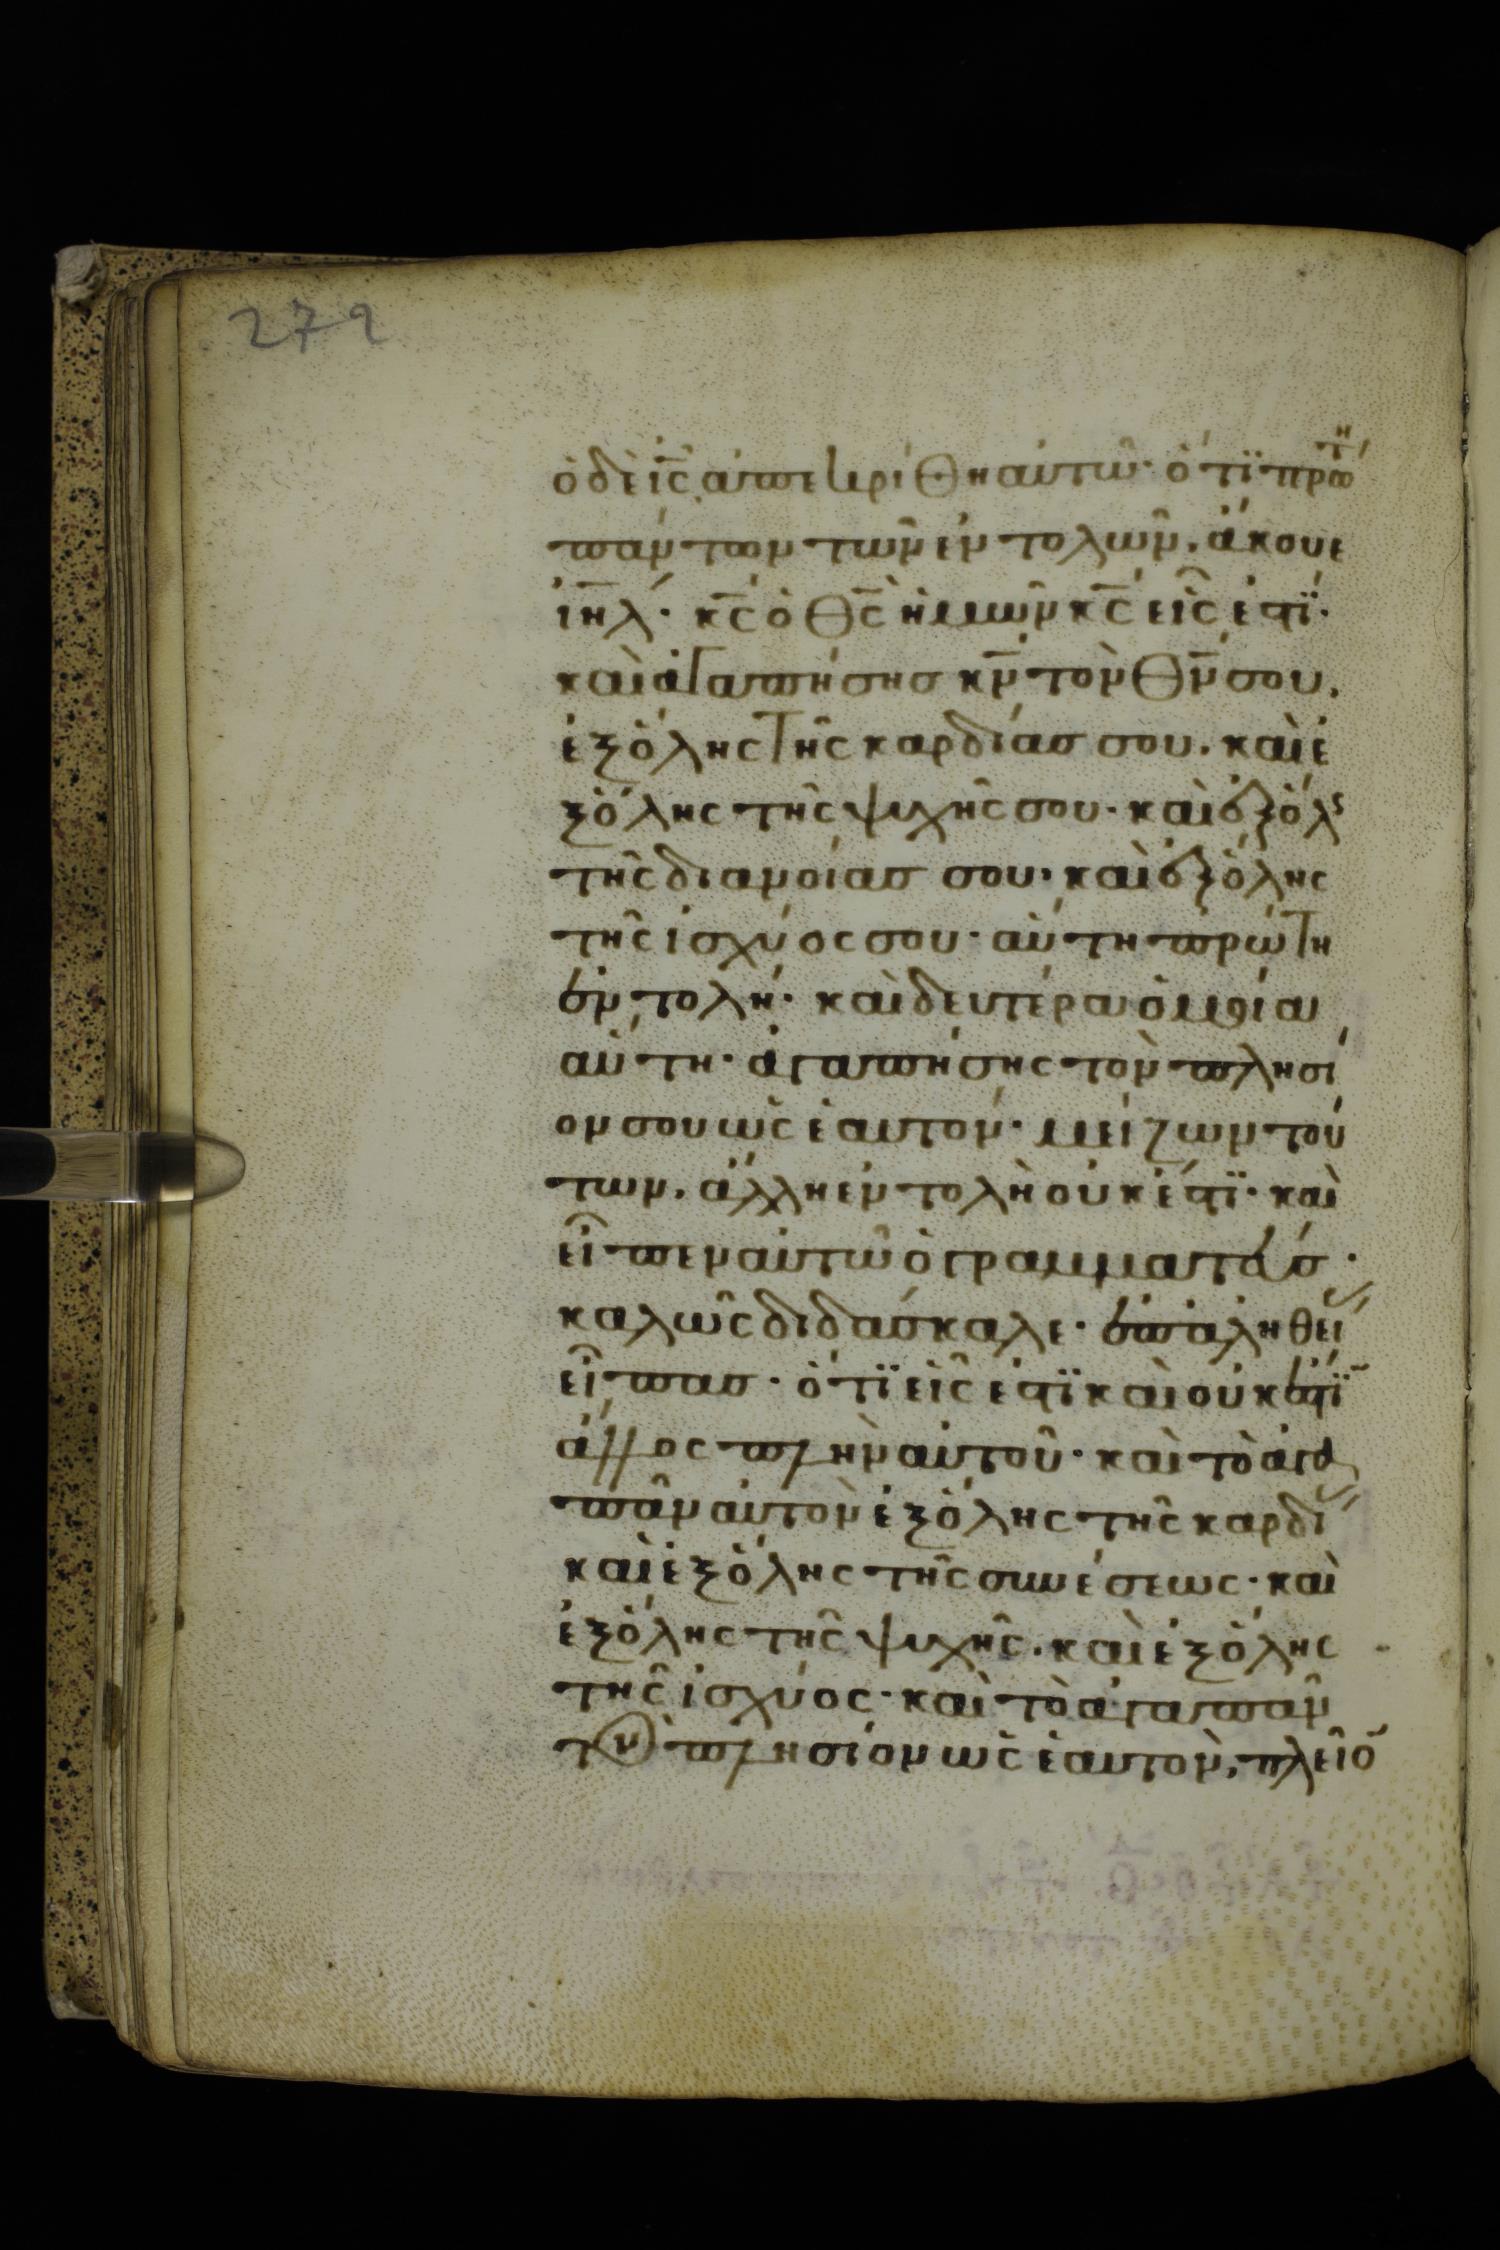 272
ὁ δὲ ις̅ ἀπεκρίθη αὐτῶ· ὅτϊ πρώτη
πάντων τῶν ἐντολῶν. ἄκουε
ιη̅λ· κς̅ ὁ θς̅ ἡμῶν κς̅ εἷς ἐστϊ·
καὶ ἀγαπήσησ κν̅ τὸν θν̅ σου.
ἐξ ὅλης τῆς καρδίασ σου. καὶ ἐ
ξ ὅλης τῆς ψυχῆς σου· καὶ ἐξ ὅλης
τῆς διανοίασ σου· καὶ ἐξ ὅλης
τῆς ἰσχύος σου· αὕτη πρώτη
ἐντολή· καὶ δευτέρα ὁμοία
αὕτη· ἀγαπήσης τὸν πλησί
ον σου ὡς ἑαυτόν· μείζων τού
των. ἄλλη ἐντολὴ οὐκ ἔστϊ· καὶ
εἶπεν αὐτῶ ὁ γραμματεύσ·
καλῶς διδάσκαλε· ἐπ' ἀληθεί
εἶπασ· ὅτϊ εἷς ἐστϊ καὶ οὐκ ἔστϊ̃
ἄλλος πλὴν αὐτοῦ· καὶ τὸ ἀγα
πᾶν αὐτὸν ἐξ ὅλης τῆς καρδί
καὶ ἐξ ὅλης τῆς συνέσεως· καὶ
ἐξ ὅλης τῆς ψυχῆς. καὶ ἐξ ὅλης
τῆς ἰσχύος· καὶ τὸ ἀγαπᾶν
τὸν πλησίον ὡς ἑαυτὸν, πλεῖο̃